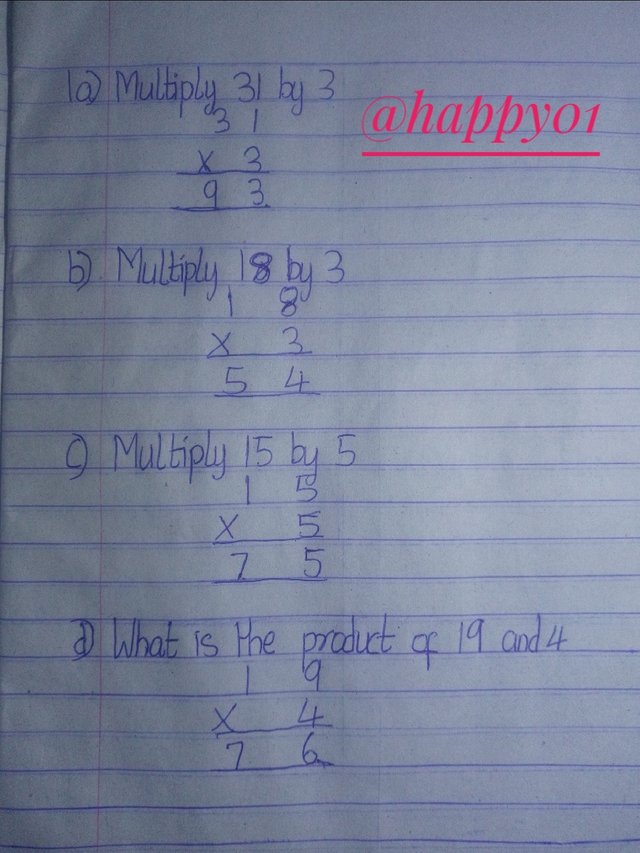 1a) Multiply 31 by 3
@happy01
3 1
x 3
9 3
b) Multiply 18 by 3
1 8
x 3
5 4
c) Multiply 15 by 5
1 5
x 5
7 5
d) What is the product of 19 and 4
1 9
x 4
7 6